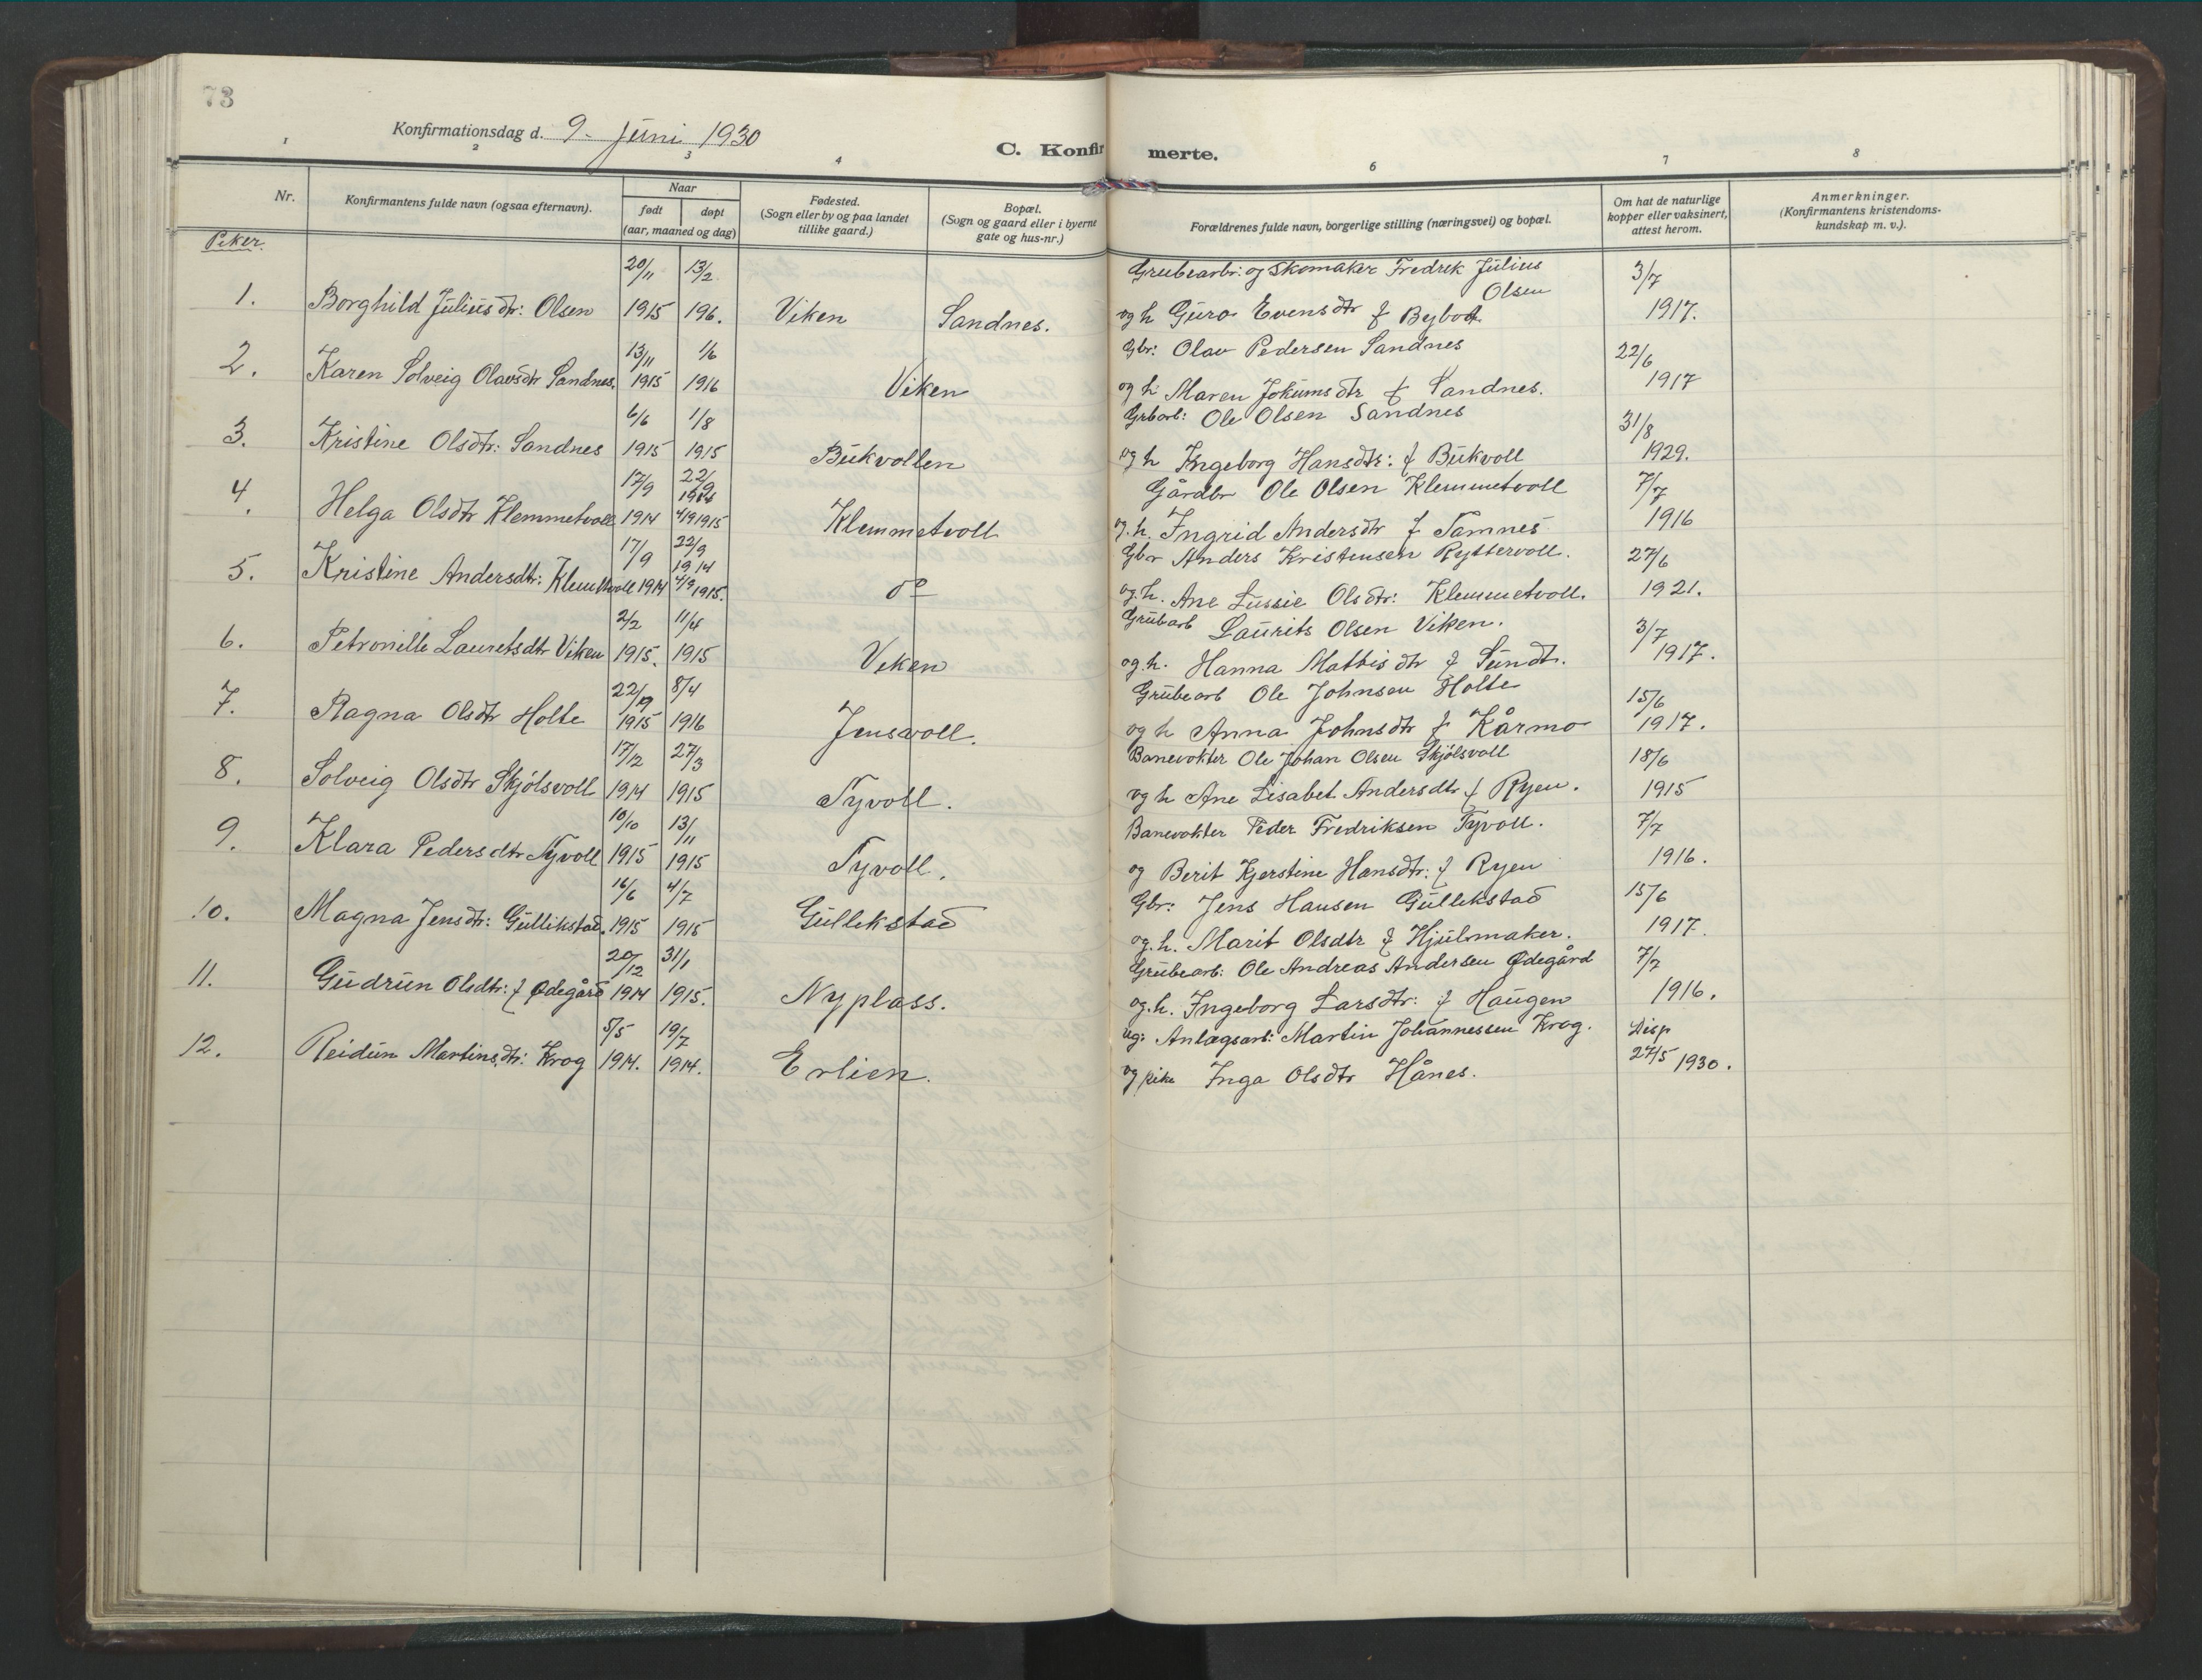 73
Konfirmationsdag d. 9. juni 1930
C. Konfirmerte.
1 2 3 4 6 7 8
Nr. Konfirmantens fulde navn (ogsaa efternavn). Naar født døpt (aar, maaned og dag) Fødested. (Sogn eller by og paa landet tillike gaard.) Bopæl. (Sogn og gaard eller i byernt gate og hus-nr.) Forældrenes fulde navn, borgerlige stilling (næringsvei) og bopæl. Om hat de naturlige kopper eller vaksinert, attest herom. Anmerkninger. (Konfirmantens kristendoms-kundskap m. v.).
Piker.
20/11 13/2 Grubearbr: og Skomaker Fredrik Julius Olsen 3/7
1. Borghild Juliusdtr: Olsen 1915 196. Viken Sandnes. og h Guro Evensdtr f Bybot 1917.
2. 13/11 1/6 Gbr: Olav Pedersen Sandnes 22/6
Karen Solveig Olavsdtr Sandnes. 1915 1916 Viken og h Maren Jokumsdtr f Sandnes. 1917
3. 6/6 1/8 Grbarb: Ole Olsen Sandnes 31/8
Kristine Olsdtr: Sandnes 1915 1915 Bukvollen og h Ingeborg Hansdtr: f Bukvoll 1929.
4. 17/9 22/9 1914 Gårdbr Ole Olsen Klemmetvoll 7/7
Helga Olsdtr Klemmetvoll 1914 4/9 1915 Klemmetvoll og.h. Ingrid Andersdtr f Tamnes 1916
5. 17/9 22/9 1914 Gbr Anders Kristensen Ryttervoll. 27/6
Kristine Andersdtr: Klemtvoll 1914 4/9 1915. do og.h. Ane Lussie Olsdtr: Klemmetvoll. 1921.
6. 2/2 11/4 Grubarb Laurits Olsen Viken. 3/7
Petronille Lauretsdtr Viken 1915. 1915 Viken og.h. Hanna Mattisdtr f Sundt. 1917.
7. 22/9 8/4 Grubearb Ole Johnsen Holte 15/6
Ragna Olsdtr Holte 1915 1916 Jensvoll. og h Anna Johnsdtr f Kårmo 1917.
8. 17/12 27/3 Banevokter Ole Johan Olsen Skjölsvoll 18/6
Solveig Olsdtr Skjölsvoll 1914 1915 Tyvoll. og h Ane Lisabet Andersdtr f Ryen. 1915
9. 10/10 13/11 Banevokter Peder Fredriksen Tyvoll. 7/7
Klara Pedersdtr Tyvoll 1915 1915 Tyvoll. og Berit Kjerstine Hansdtr: f Ryen 1916.
10. 16/6 4/7 Gbr: Jens Hansen Gullikstad 15/6
Magna Jensdtr: Gullikstad. 1915 1915 Gullikstad og.h. Marit Olsdtr f Hjulmaker. 1917.
11. 20/12 31/1 Grubearb: Ole Andreas Andersen Ødegård 7/7
Gudrun Olsdtr: f Ødegård 1914 1915. Nyplass. og.h. Ingeborg Larsdtr: f Haugen 1916.
12. 5/5 19/7 ug: Anlægsarb: Martin Johannessen Krog. Disp
Reidun Martinsdtr: Krog 1914. 1914. Erlien. og pike Inga Olsdtr Hånes. 27/5 1930.